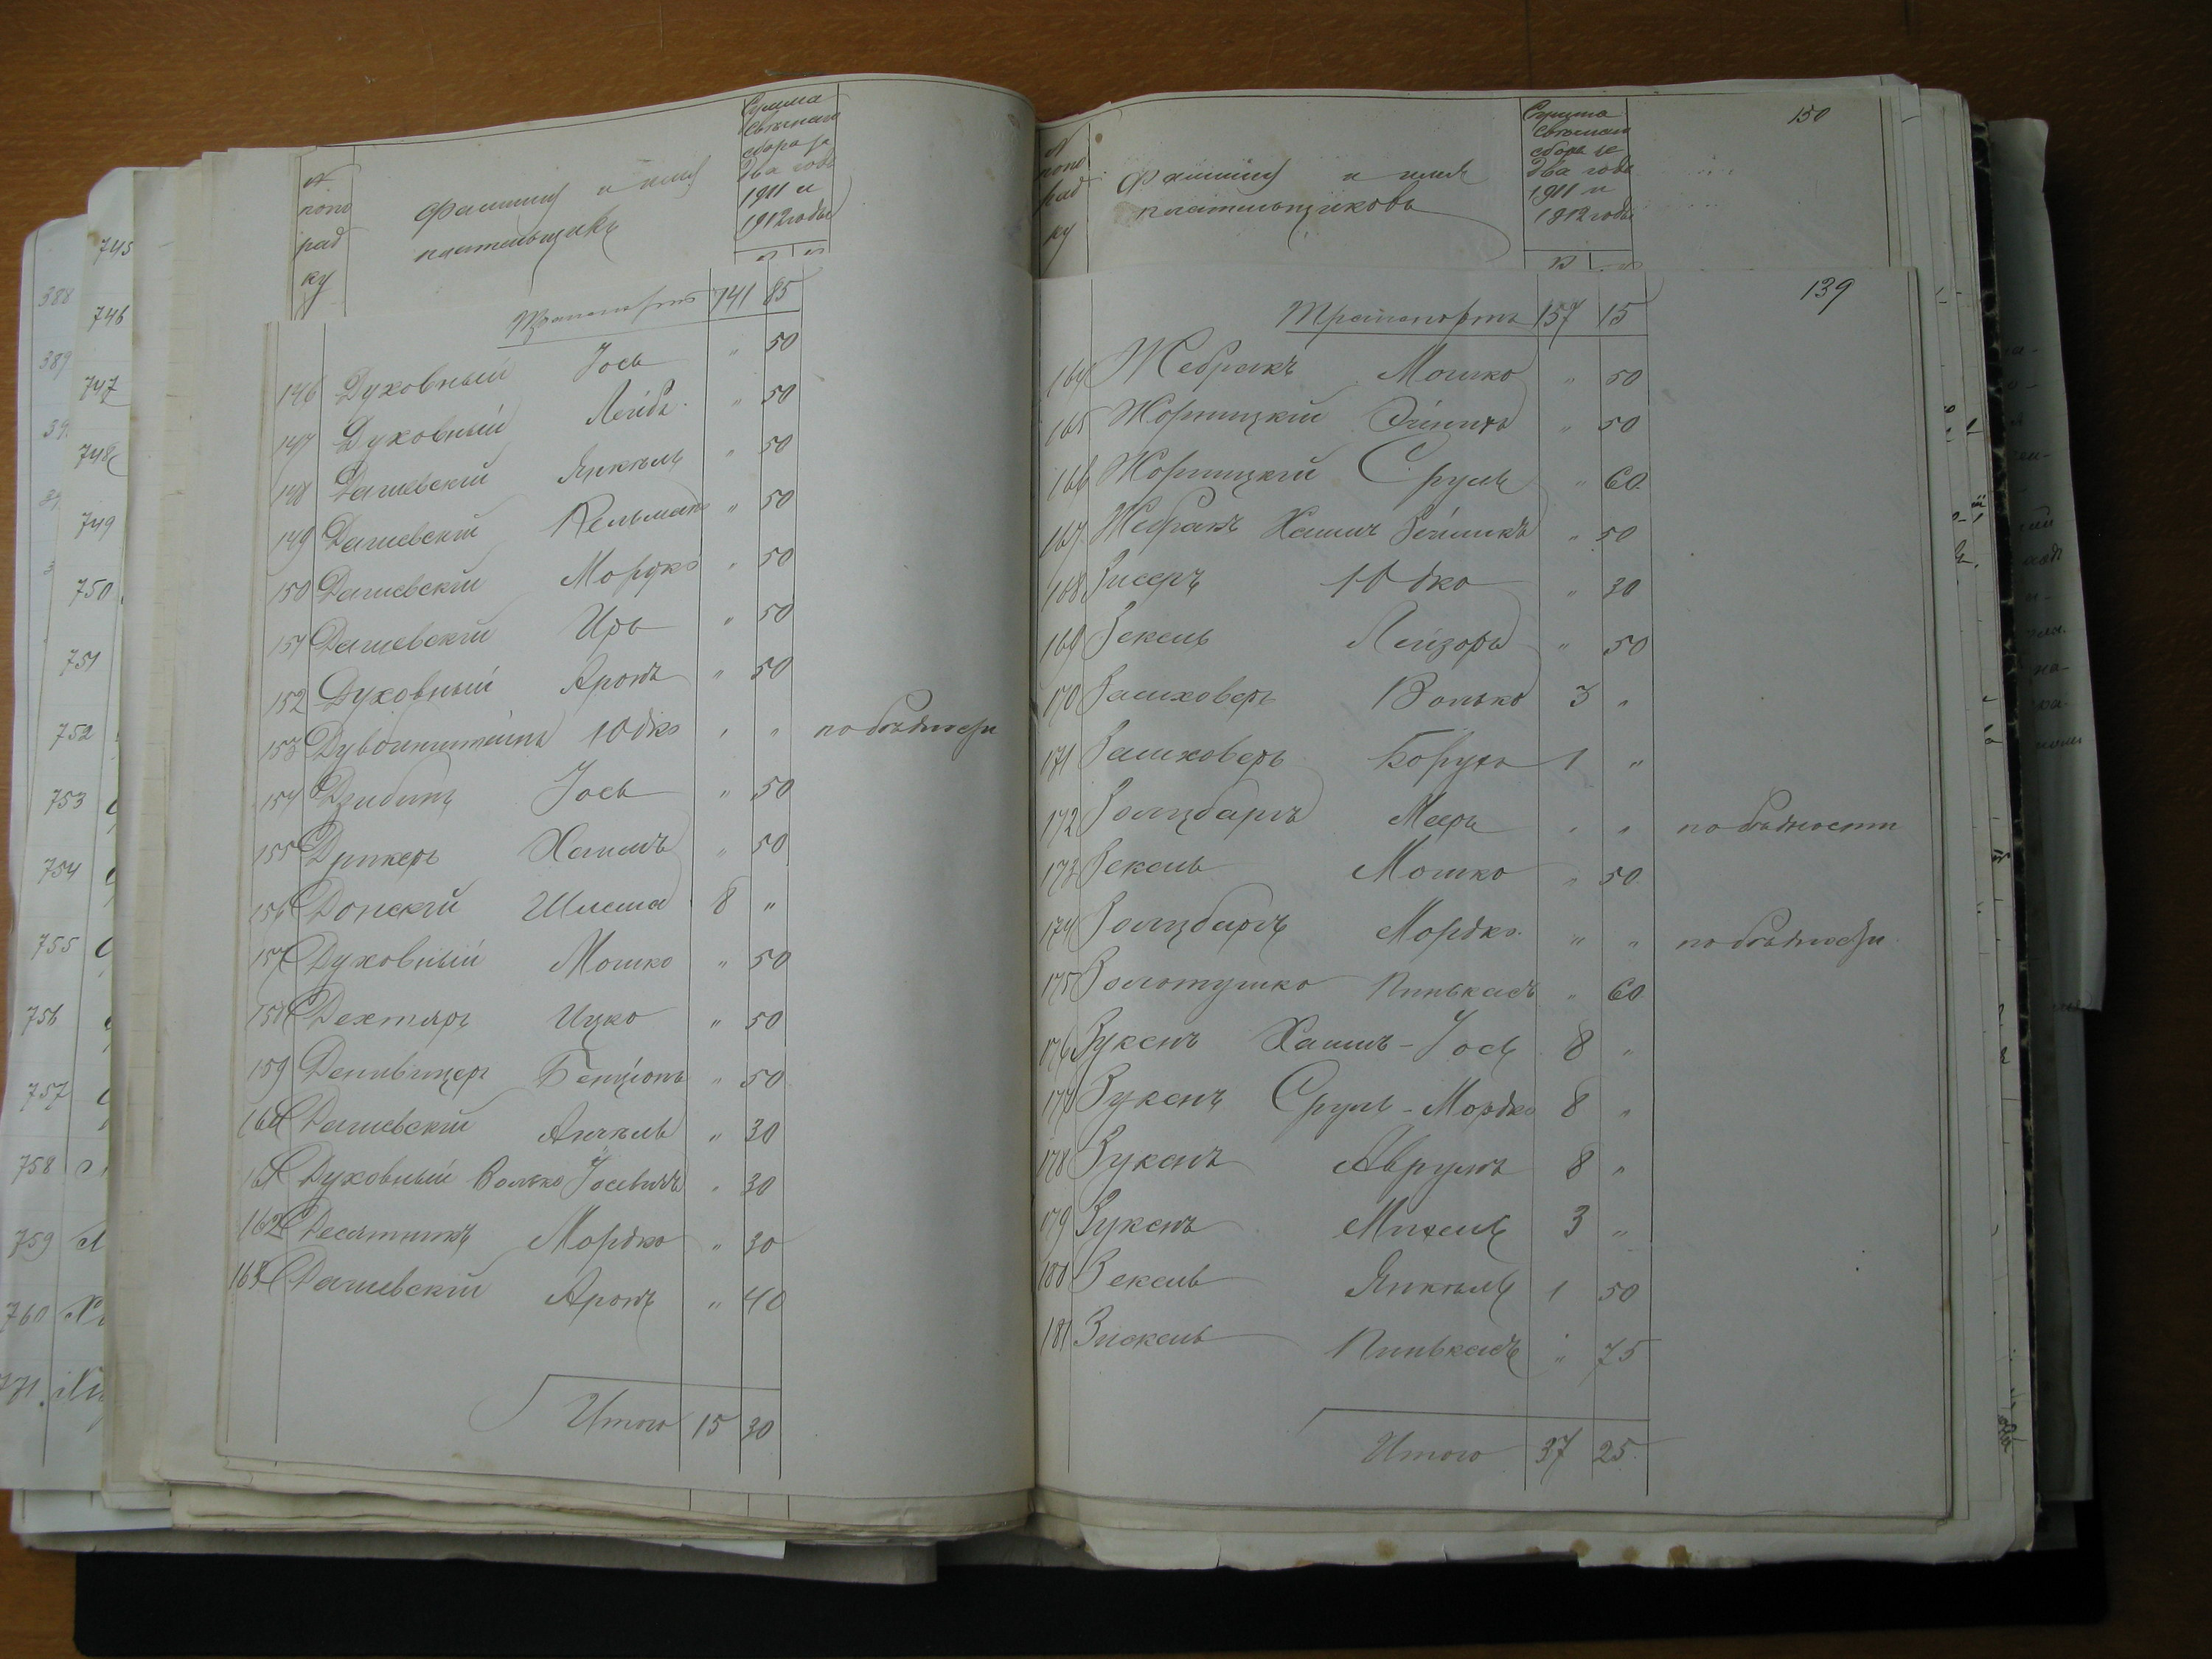 № по порядку
Фамилия и имя плательщика
Сумма свѣчнаго сбора за два года 1911 и 1912 годы
Транспортъ 141 85
146 Духовный Іось " 50
147 Духовный Лейба " 50
148 Дашевскій Янкель " 50
149 Дашевскій Кельманъ " 50
150 Дашевскій Мордко " 50
151 Дашевскій Иръ " 50
152 Духовный Аронъ " 50
153 Юдко " " по бѣдности
154 Дзибикъ Іось " 50
155 Дрикеръ Хаимъ " 50
156 Донскій Шлема 8 "
157 Духовный Мошко " 50
158 Дехтяръ Ицко " 50
159 Бенціонъ " 50
160 Дашевскій Анкель " 30
161 Духовный Волько Іосевичъ " 30
162 Десятникъ Мордко " 30
163 Дашевскій Аронъ " 40
Итого 15 30
150
№ по порядку
Фамилия и имя плательщиковъ
Сумма свѣчнаго сбора за два года 1911 и 1912 годы
139
Транспортъ 157 15
164 Жебракъ Мошко " 50
165 Жорницкій " 50
166 Жорницкій Сруль " 60
167 Жебракъ Хаимъ Зейликъ " 50
168 Зисеръ Юдко " 30
169 Зекель Лейзоръ " 50
170 Зашховеръ Волько 3 "
171 Зашховеръ Борухъ 1 "
172 Залцбаргъ Мееръ " " по бѣдности
173 Зекель Мошко " 50
174 Залцбаргъ Мордко " " по бѣдности
175 Золотушко Пинькасъ " 60
176 Зукенъ Хаимъ-Іось 8 "
177 Зукенъ Сруль-Мордко 8 "
178 Зукенъ Аврумъ 8 "
179 Зукенъ Михель 3 "
180 Зекель Янкель 1 50
181 Зискель Пинькасъ " 75
Итого 37 25
388
389
745
746
747
748
749
750
751
752
753
754
755
756
757
758
759
760
771